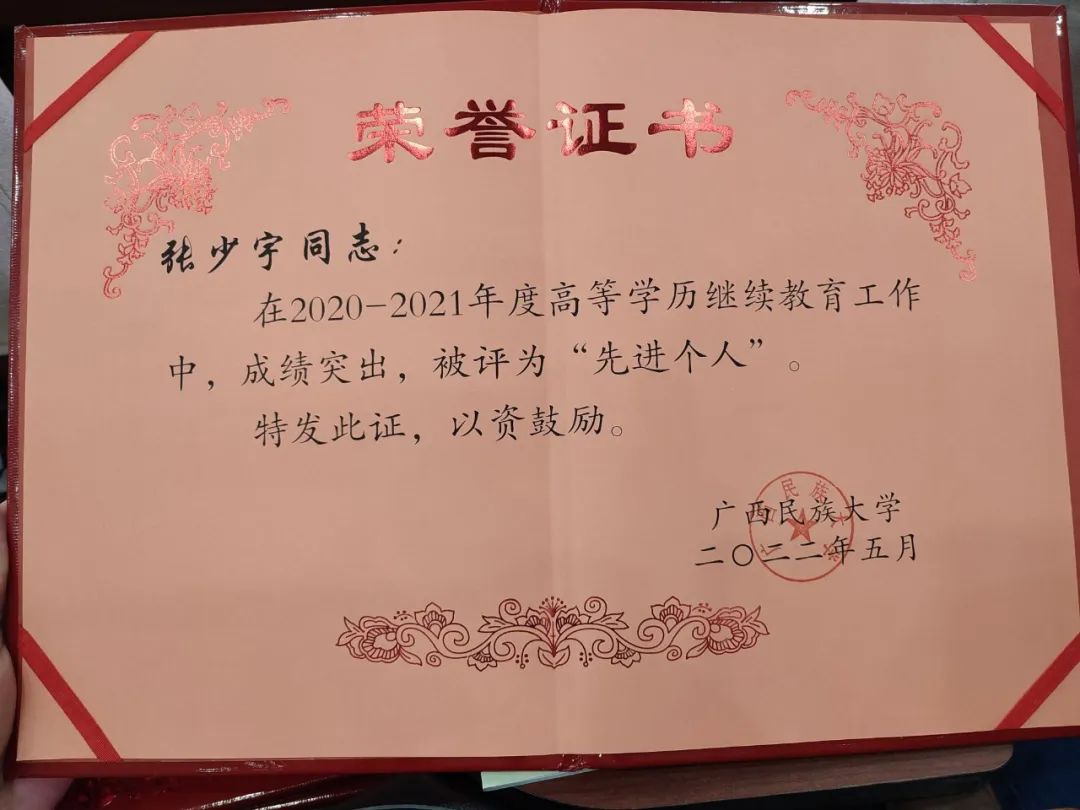 荣誉证书
张少宇同志：
在2020-2021年度高等学历继续教育工作
中，成绩突出，被评为“先进个人”。
特发此证，以资鼓励。
广西民族大学
二〇二二年五月